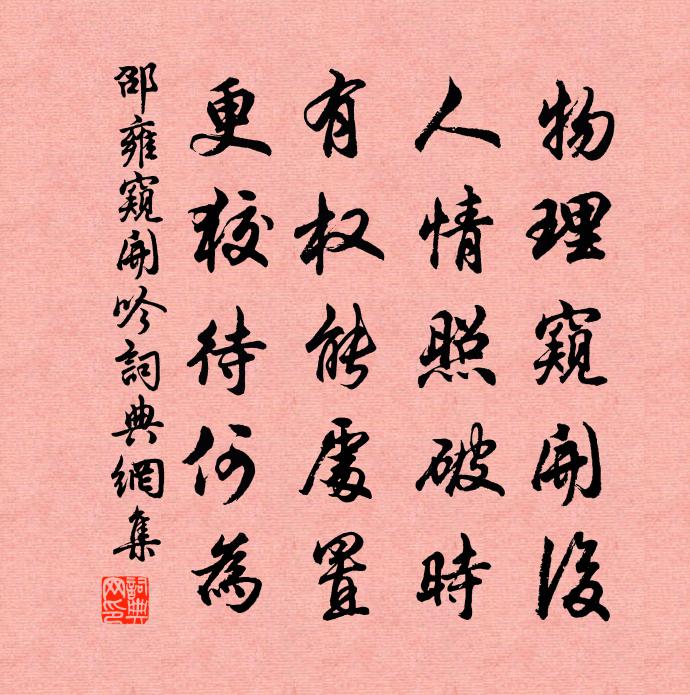 物理窺開後
人情照破時
有权能處置
更狡待何為
邵雍窺開吟詞典網集
詞典
网印